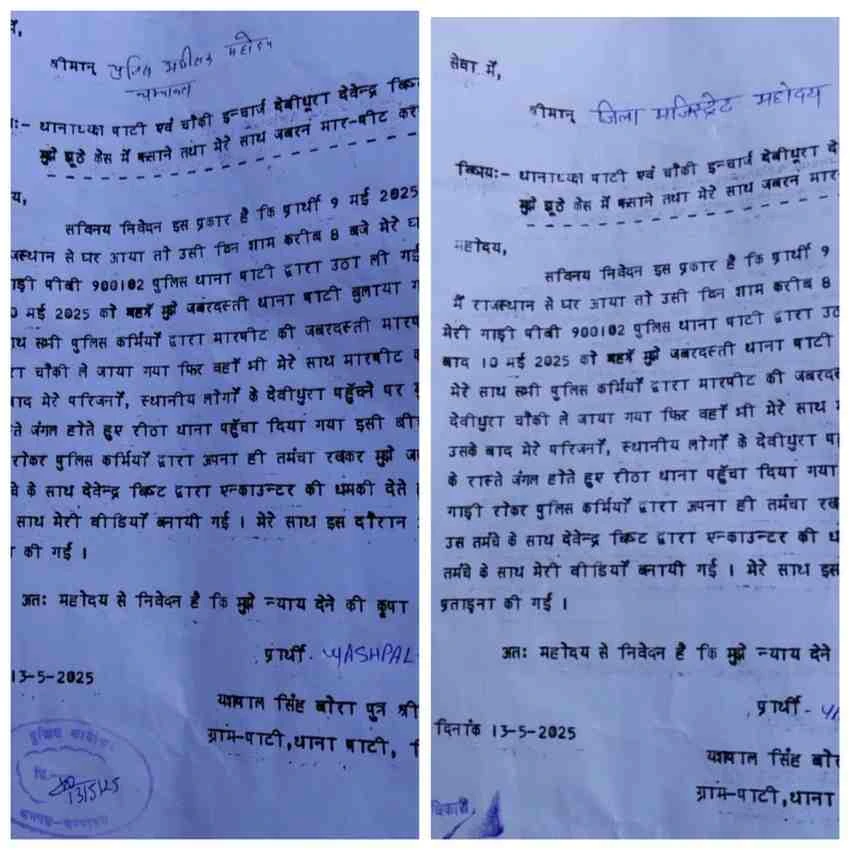 में,
श्रीमान् पुलिस अधीक्षक महोदय
चम्पावत
यः- थानाध्यक्ष पाटी एवं चौकी इन्चार्ज देवीधुरा देवेन्द्र बिष्ट
मुझे झूठे केस में फसाने तथा मेरे साथ जबरन मार-पीट कर
य,
सविनय निवेदन इस प्रकार है कि प्रार्थी 9 मई 2025
जस्थान से घर आया तो उसी दिन शाम करीब 8 बजे मेरे घ
गाड़ी पीबी 900102 पुलिस थाना पाटी द्वारा उठा ली गई
0 मई 2025 को मुझे जबरदस्ती थाना पाटी बुलाया ग
ाथ सभी पुलिस कर्मियों द्वारा मारपीट की जबरदस्ती मारप
रा चौकी ले जाया गया फिर वहाँ भी मेरे साथ मारपीट क
ाद मेरे परिजनों, स्थानीय लोगों के देवीधुरा पहुँचने पर
ते जंगल होते हुए रीठा थाना पहुँचा दिया गया इसी बी
रोकर पुलिस कर्मियों द्वारा अपना ही तमंचा रखकर मुझे ज
चे के साथ देवेन्द्र बिष्ट द्वारा एन्काउन्टर की धमकी देते
साथ मेरी वीडियों बनायी गई । मेरे साथ इस दौरान
की गई ।
अतः महोदय से निवेदन है कि मुझे न्याय देने की कृपा
प्रार्थी - YASHPAL
13-5-2025
यशपाल सिंह बोरा पुत्र श्री
ग्राम-पाटी, थाना पाटी,
पुलिस कार्यालय
13/5/25
जनपद-चम्पावत
सेवा में,
श्रीमान् जिला मजिस्ट्रेट महोदय
विषयः- थानाध्यक्ष पाटी एवं चौकी इन्चार्ज देवीधुरा दे
मुझे झूठे केस में फसाने तथा मेरे साथ जबरन मार-
महोदय,
सविनय निवेदन इस प्रकार है कि प्रार्थी 9
में राजस्थान से घर आया तो उसी दिन शाम करीब 8
मेरी गाड़ी पीबी 900102 पुलिस थाना पाटी द्वारा उठ
बाद 10 मई 2025 को मुझे जबरदस्ती थाना पाटी
मेरे साथ सभी पुलिस कर्मियों द्वारा मारपीट की जबरदस
देवीधुरा चौकी ले जाया गया फिर वहाँ भी मेरे साथ म
उसके बाद मेरे परिजनों, स्थानीय लोगों के देवीधुरा प
के रास्ते जंगल होते हुए रीठा थाना पहुँचा दिया गया
गाड़ी रोकर पुलिस कर्मियों द्वारा अपना ही तमंचा रख
उस तमंचे के साथ देवेन्द्र बिष्ट द्वारा एन्काउन्टर की ध
तमंचे के साथ मेरी वीडियों बनायी गई । मेरे साथ इस
प्रताड़ना की गई ।
अतः महोदय से निवेदन है कि मुझे न्याय देने
प्रार्थी - YA
दिनांक 13-5-2025
यशपाल सिंह बोर
ग्राम-पाटी, थाना